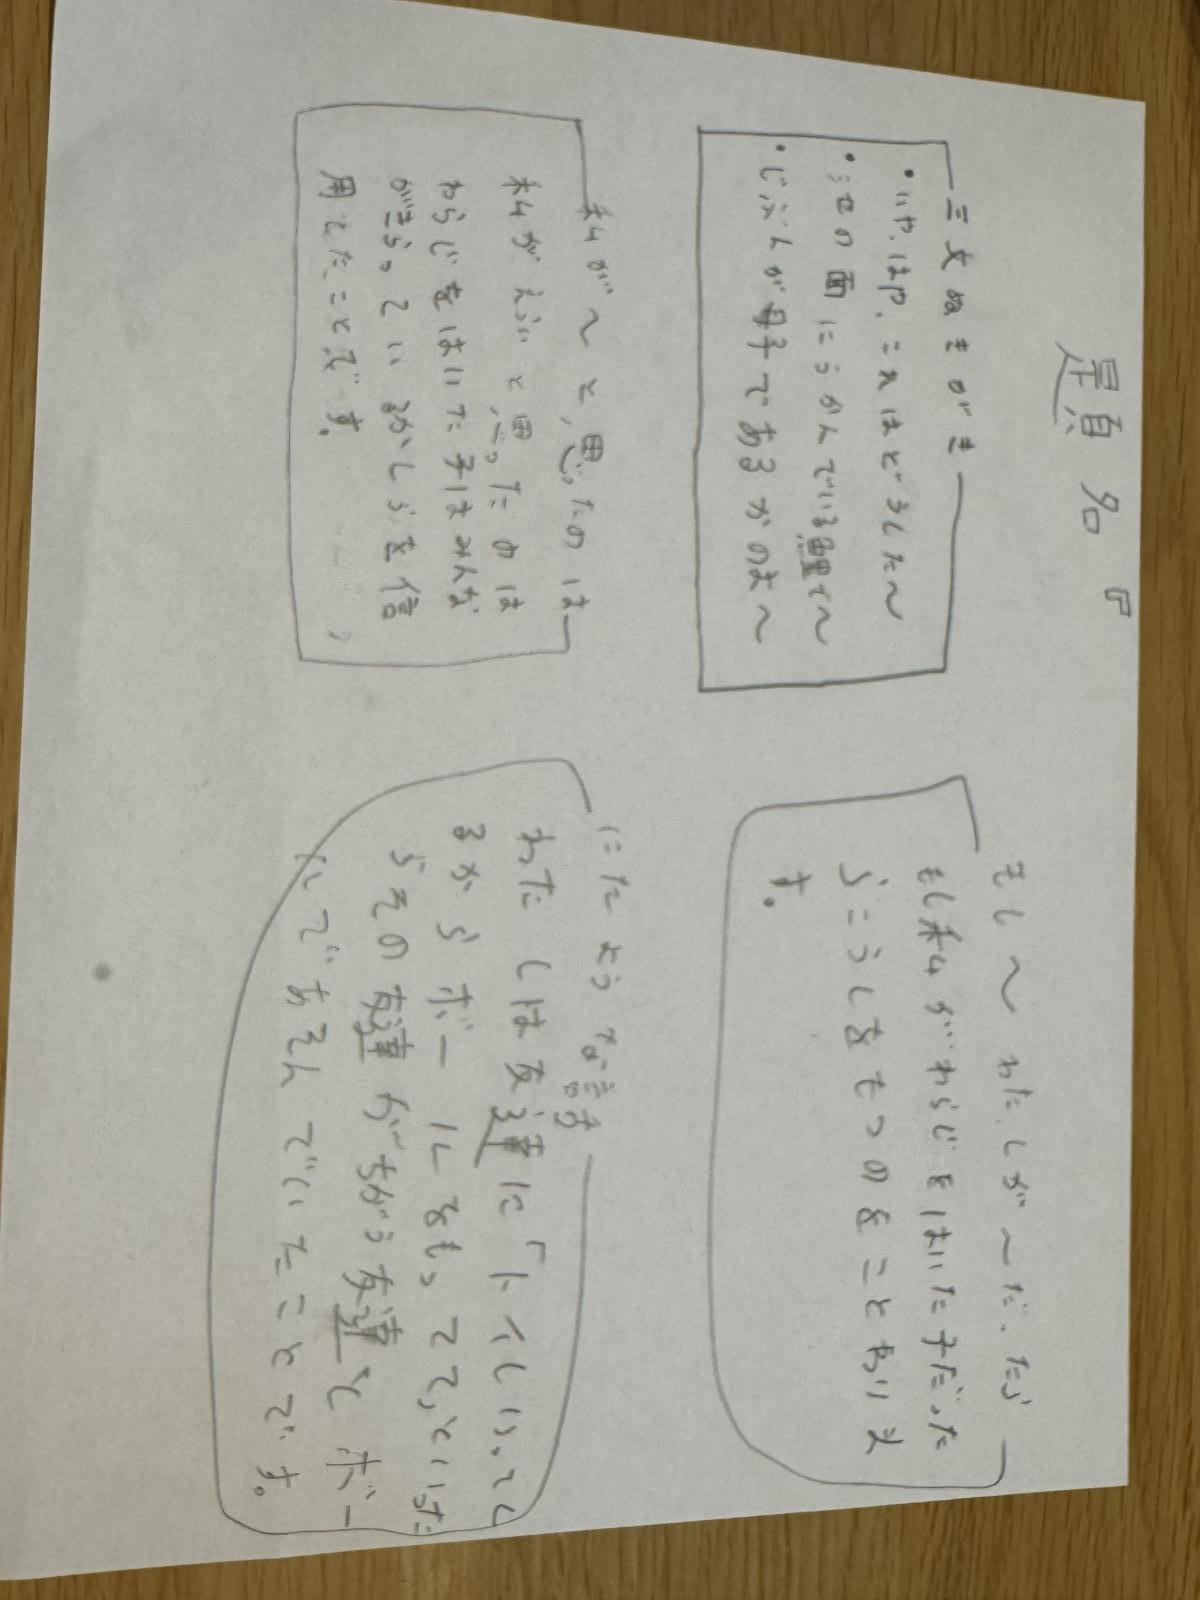 題名『
三文ぬきがき
・いや、はや、これはどうした〜
・ミセの面にうかんでいる鯉て〜
・じぶんが母子であるかのよ〜
もし〜わたしが〜だったら
もし私がわらじをはいた子だった
らこうしをもつのをことわりま
す。
私が〜と思ったのは
私がえらいと思ったのは
わらじをはいた子はみんな
がきらっているかしらを信
用したことです。
にたような話
わたしは友達に「トイレいってく
るからボールをもってて」といった
らその友達がちがう友達とボー
ルであそんでいたことです。